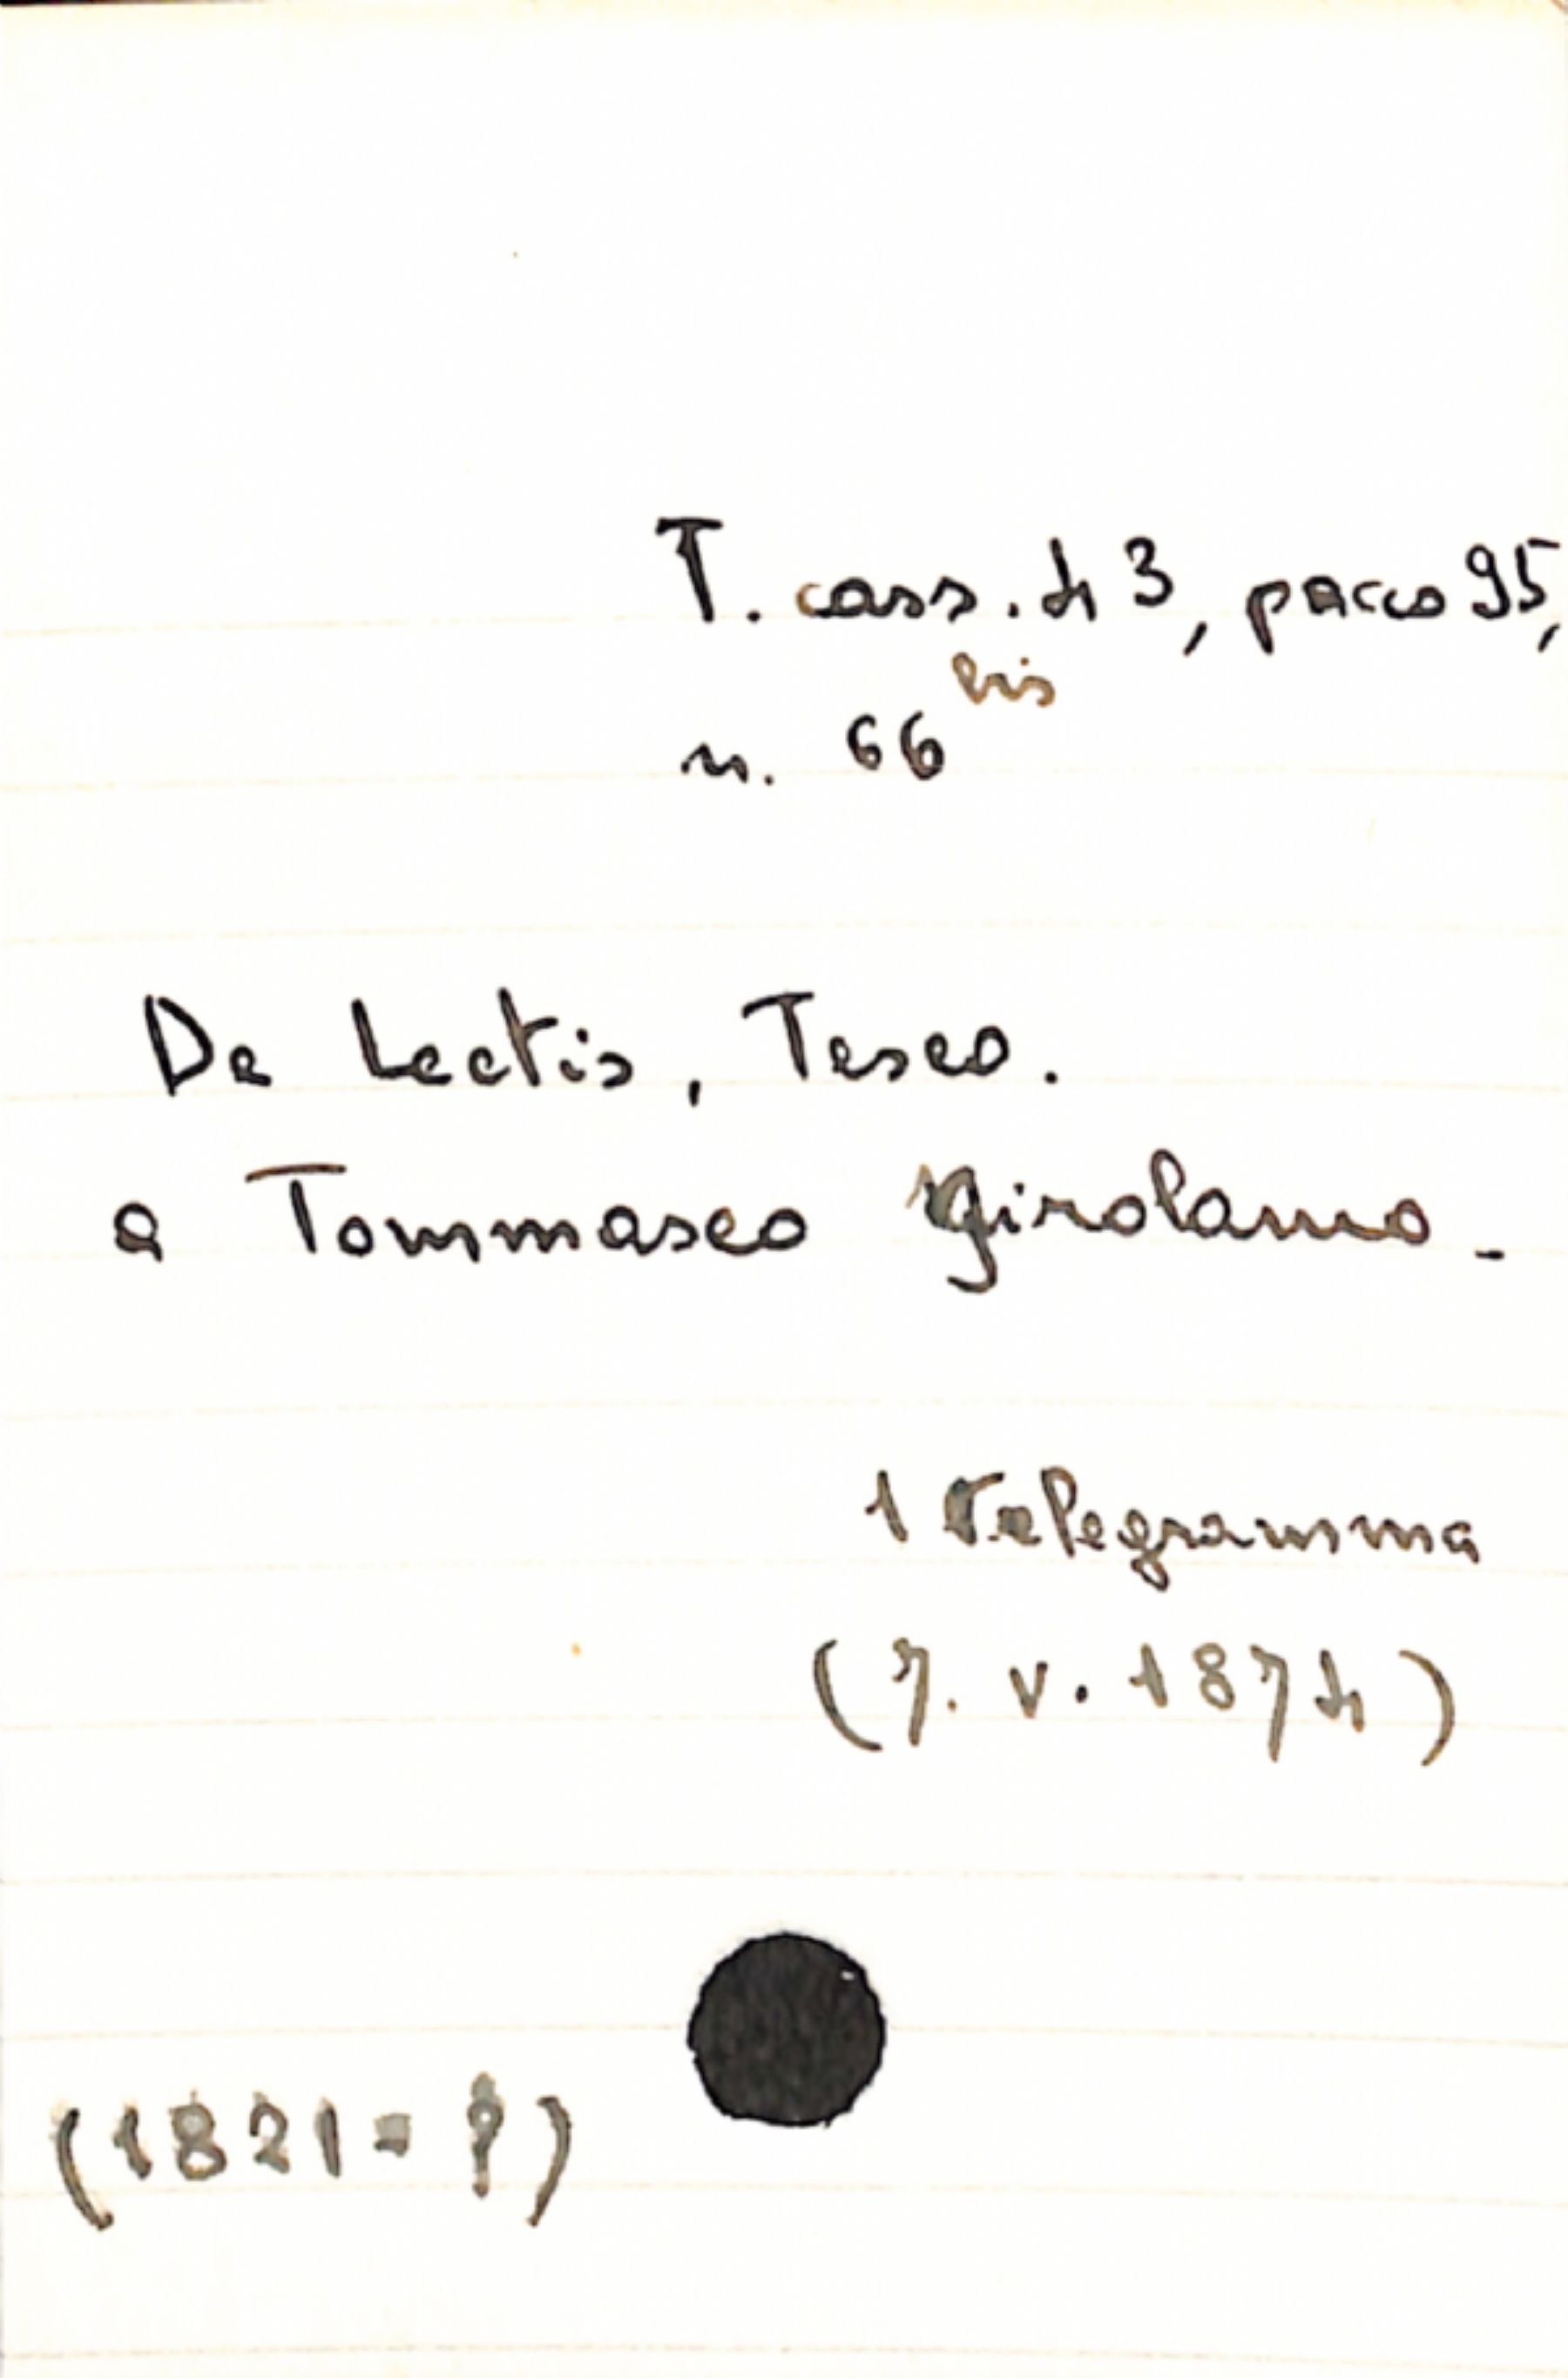 T. cass. 43, pacco 95,
n. 66 bis
De Lectis, Teseo.
a Tommaseo Girolamo.
1 Telegramma
(7. V. 1874)
(1821 = ?)